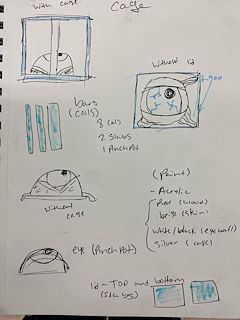 with cage
Cage
without lid
bars
(coils)
8 coils
2 slabs
1 Pinch pot
without
cage
(Paint)
- Acrylic
Red (blood)
beige (skin)
white/black (eye ball)
silver (cage)
eye (Pinch Pot)
lid - TOP and bottom
(slabs)